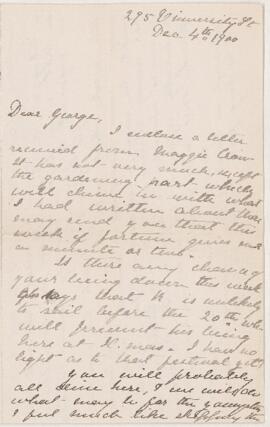 295 University St
Dec. 4th 1900
Dear George,
I enclose a letter
received from Maggie
It has not very much, except
the gardening part which
will chime in with what
I had written about
may send you that this
week if fortune gives me
a minute or two.
Is there any chance of
your being down this week
says that he is unlikely
to sail before the 20th
will his being
here at X. mas. I have no
light as to that festival yet
you will probably
all dine here, &
what may be for the youngsters
I feel much like